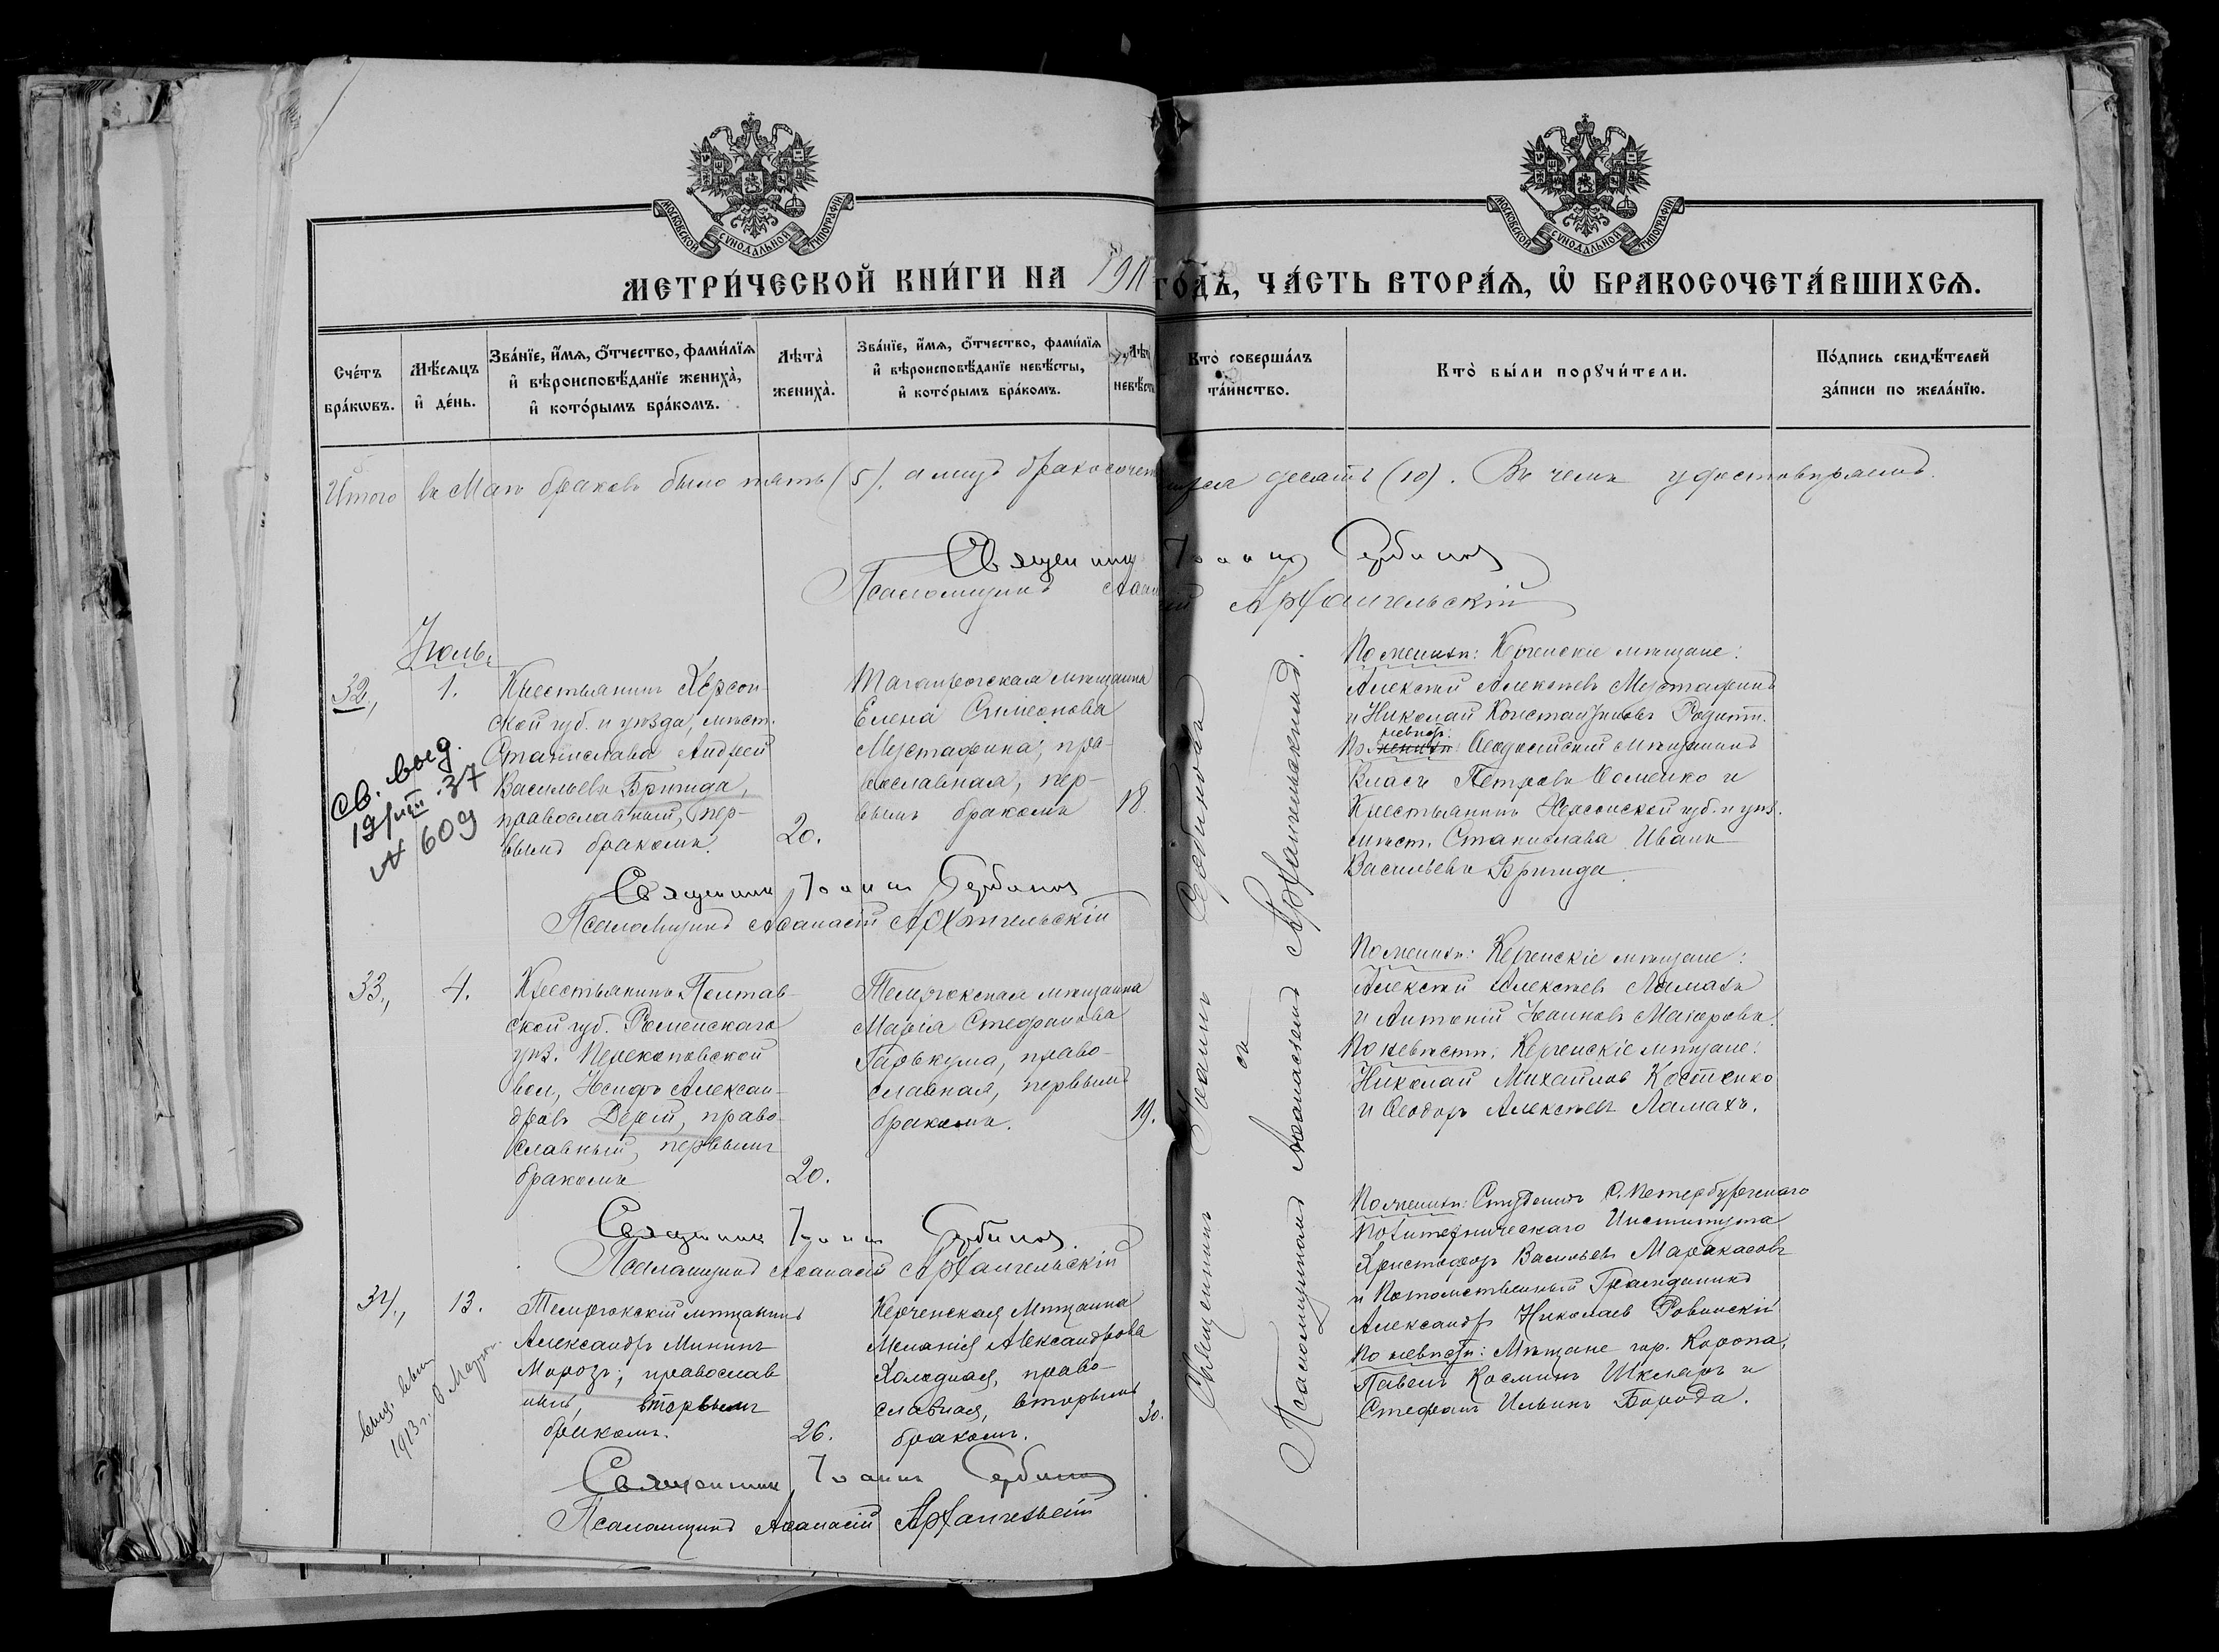 МОСКОВСКОЙ СѴНОДАЛЬНОЙ ТИПОГРАФІИ
МОСКОВСКОЙ СѴНОДАЛЬНОЙ ТИПОГРАФІИ
МЕТРИ́ЧЕСКОЙ КНИ́ГИ НА 1911 ГО́ДЪ, ЧА́СТЬ ВТОРА́Ѧ, Ѡ БРАКОСОЧЕТА́ВШИХСѦ.
Сче́тъ бра́кѡвъ.
Мѣ́сѧцъ и҆ де́нь.
Зва́нїе, и҆́мѧ, ѻ҆́тчество, фами́лїѧ и҆ вѣроисповѣ́данїе жениха̀, и҆ кото́рымъ бра́комъ.
Лѣта̀ жениха̀.
Зва́нїе, и҆́мѧ, ѻ҆́тчество, фами́лїѧ и҆ вѣроисповѣ́данїе невѣ́сты, и҆ кото́рымъ бра́комъ.
Лѣта невѣ́сты
Кто̀ соверша́лъ та́инство.
Кто̀ бы́ли порꙋчи́тели.
По́дпись свидѣ́телей за́писи по жела́нїю.
Итого въ Маѣ браковъ было пять (5), а лицъ бракосочет десять (10). Въ чемъ удостовѣряемъ.
Священникъ Іоаннъ Сербиновъ
Псаломщикъ Аѳанасій Архангельскій
Іюль.
32., 1.
Крестьянинъ Херсон-
ской губ. и уѣзда, мѣст.
Станислава Андрей
Васильевъ Бригида,
православный, пер-
вымъ бракомъ. 20.
Таганрогская мѣщанка
Елена Симеонова
Мустафина, пра-
вославная, пер-
вымъ бракомъ 18.
По женихѣ: Керченскіе мѣщане:
Алексѣй Алексѣевъ Мустафинъ
и Николай Константиновъ
По невѣст: Ѳеодосійскій мѣщанинъ
Власъ Петровъ Ѳоменко и
Крестьянинъ Херсонской губ. и уѣз.
мѣст. Станислава Иванъ
Васильевъ Бригида.
Св. выд.
19/VIII.37
№ 609
Священникъ Іоаннъ Сербиновъ
Псаломщикъ Аѳанасій Архангельскій
33., 4.
Крестьянинъ Полтав-
ской губ. Роменскаго
уѣз. Перекоповской
вол., Іосифъ Алексан-
дровъ Дерій, право-
славный, первымъ
бракомъ 20.
Темрюкская мѣщанка
Марія Стефанова
Гарькуша, право-
славная, первымъ
бракомъ. 19.
По женихѣ: Керченскіе мѣщане:
Алексѣй Алексѣевъ Ламахъ
и Антоній Іоанновъ Махоровъ.
По невѣстѣ: Керченскіе мѣщане:
Николай Михайловъ Костенко
и Ѳеодоръ Алексѣевъ Ламахъ.
Священникъ Іоаннъ Сербиновъ.
Псаломщикъ Аѳанасій Архангельскій
34., 13.
Темрюкскій мѣщанинъ
Александръ Мининъ
Морозъ, православ
ный, вторымъ
бракомъ. 26.
Керченская Мѣщанка
Меланія Александрова
Холодная, право-
славная, вторымъ
бракомъ. 30.
По женихѣ: Студентъ С. Петербургскаго
Политехническаго Института
Христофоръ Васильевъ Маракасовъ
и Потомственный Гражданинъ
Александръ Николаевъ Ровинскій
По невѣстѣ: Мѣщане гор. Коропа,
Павелъ Космимъ Шкляръ и
Стефанъ Ильинъ Борода.
1913 г.
Священникъ Іоаннъ Сербиновъ
Псаломщикъ Аѳанасій Архангельскій
Священникъ Іоаннъ Сербиновъ
съ
Псаломщикомъ Аѳанасіемъ Архангельскимъ.